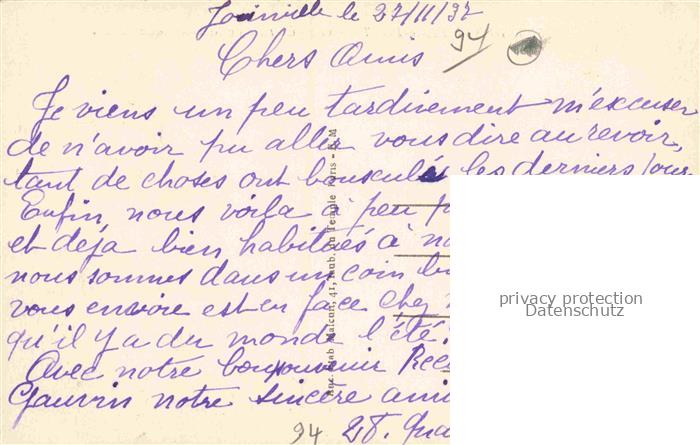 Joinville le 27/11/37
94
Chers Amis
Je viens un peu tardivement m'excuser
de n'avoir pu aller vous dire au revoir,
tant de choses ont bousculé les derniers jour
Enfin, nous voila à peu
et déja bien habitués à
nous sommes dans un coin
vous envoie est en face chez
qu'il y a du monde l'été.
Avec notre bon souvenir
Gauvin notre sincère
94 28.
41, Faub. du Temple Paris
privacy protection
Datenschutz